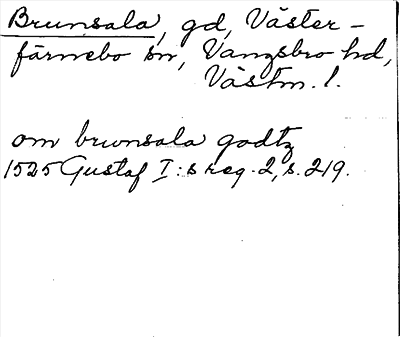 Brunsala, gd, Väster-
färnebo sn, Vangsbro hd,
Västm. l.
om brunsala godtz
1525 Gustaf I:s reg. 2, s. 219.